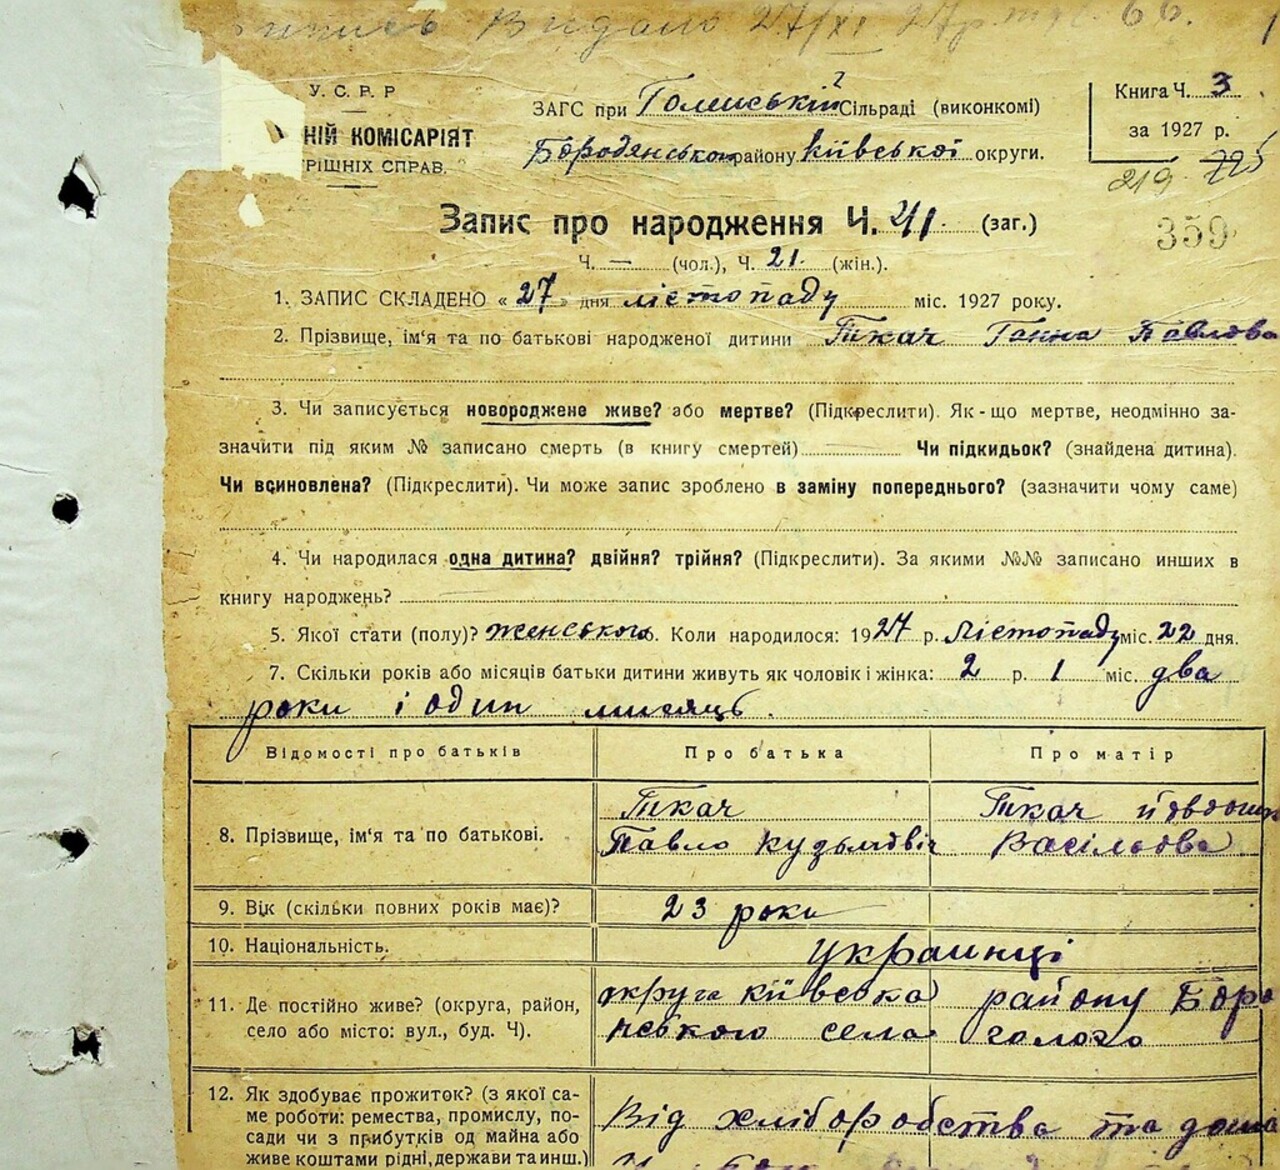 Видано 27/XI 27р.
У. С. Р. Р
ЗАГС при Голинській Сільраді (виконкомі)
Книга Ч. 3
НІЙ КОМІСАРІЯТ
за 1927 р.
РІШНІХ СПРАВ.
Бородянського району Київської округи.
219 225
Запис про народження Ч. 41. (заг.)
359
Ч. — (чол.), Ч. 21. (жін.).
1. ЗАПИС СКЛАДЕНО « 27 » дня лістопаду міс. 1927 року.
2. Прізвище, ім'я та по батькові народженої дитини Ткач Ганна Павлова
3. Чи записується новороджене живе? або мертве? (Підкреслити). Як-що мертве, неодмінно за-
значити під яким № записано смерть (в книгу смертей) Чи підкидьок? (знайдена дитина).
Чи всиновлена? (Підкреслити). Чи може запис зроблено в заміну попереднього? (зазначити чому саме)
4. Чи народилася одна дитина? двійня? трійня? (Підкреслити). За якими №№ записано инших в
книгу народжень?
5. Якої стати (полу)? женського 6. Коли народилося: 1927 р. Лістопаду міс. 22 дня.
7. Скільки років або місяців батьки дитини живуть як чоловік і жінка: 2 р. 1 міс. два
роки і один мисяць.
Відомості про батьків Про батька Про матір
Ткач Ткач
8. Прізвище, ім'я та по батькові.
Павло Кузьмовіч Васільова
9. Вік (скільки повних років має)? 23 роки
10. Національність. украинці
11. Де постійно живе? (округа, район, округа київська району Боро
село або місто: вул., буд. Ч). нського села голого
12. Як здобуває прожиток? (з якої са-
ме роботи: ремества, промислу, по- Від хліборобства та дома
сади чи з прибутків од майна або
живе коштами рідні, держави та инш.)